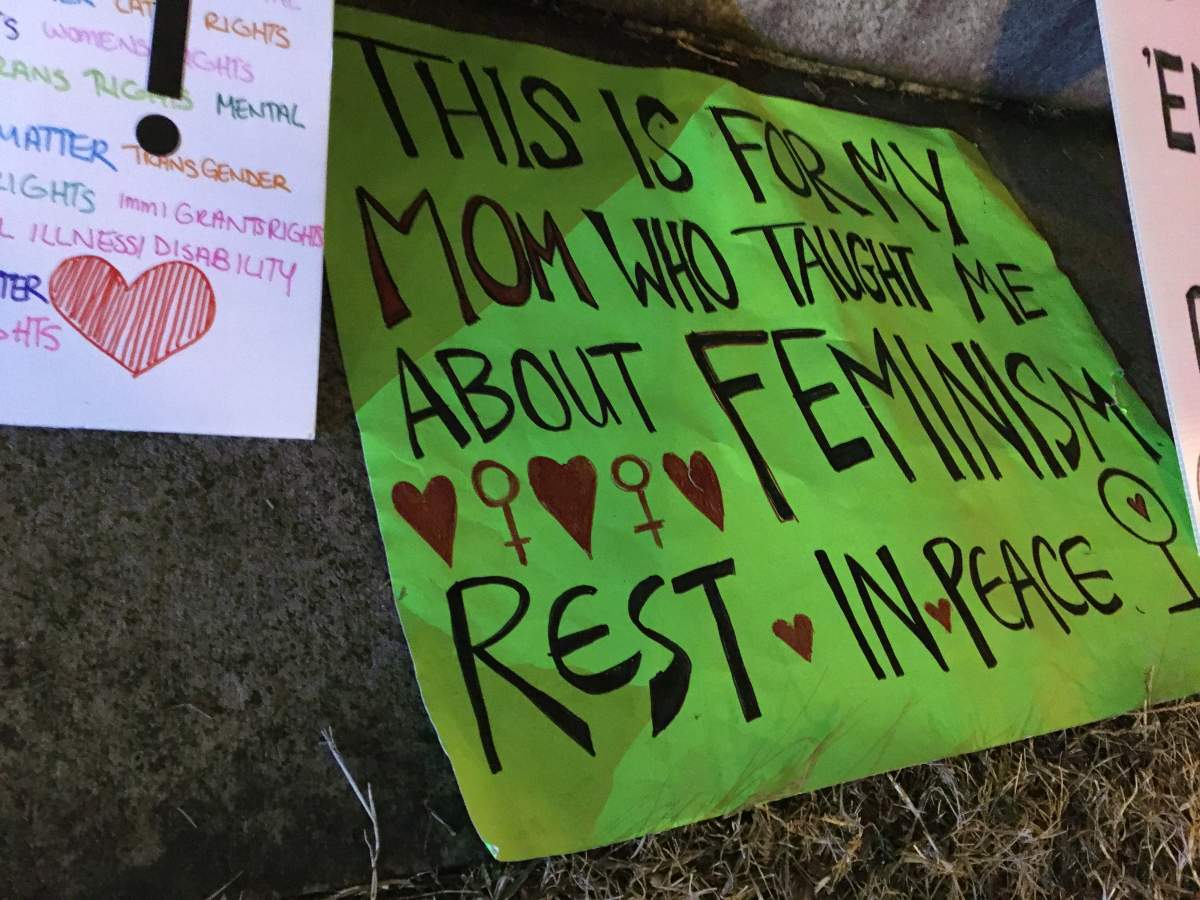 RIGHTS
WOMENS
TRANS RIGHTS MENTAL
MATTER TRANSGENDER
RIGHTS IMMIGRANTSRIGHTS
ILLNESS/DISABILITY
THIS IS FOR MY
MOM WHO TAUGHT ME
ABOUT FEMINISM
REST IN PEACE.